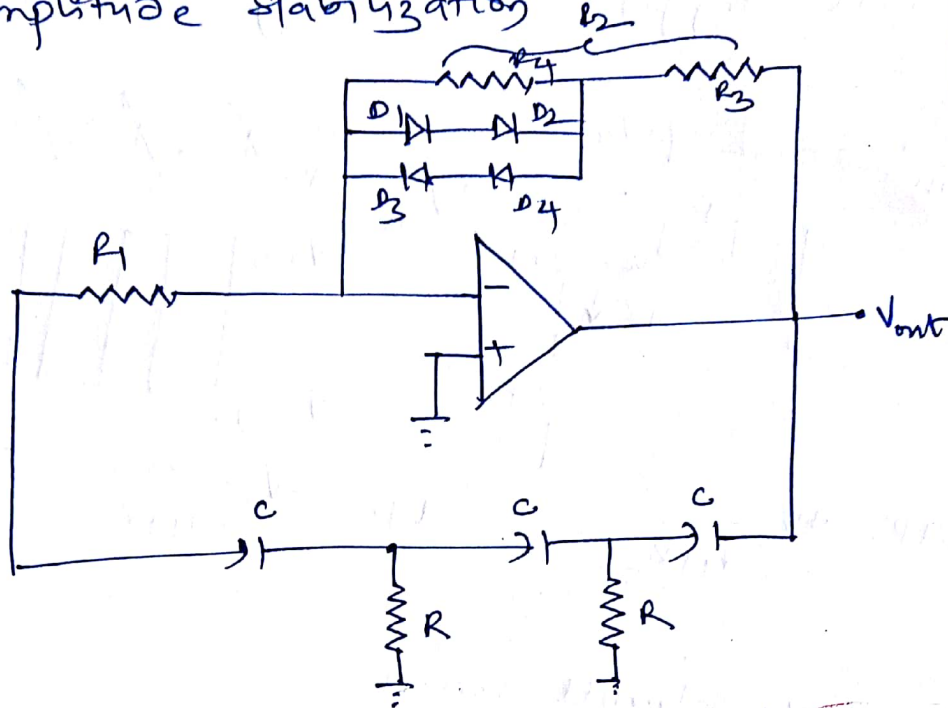 amplitude stabilization
R2
R4
R3
D1
D2
D3
D4
R1
−
+
Vout
C
C
C
R
R